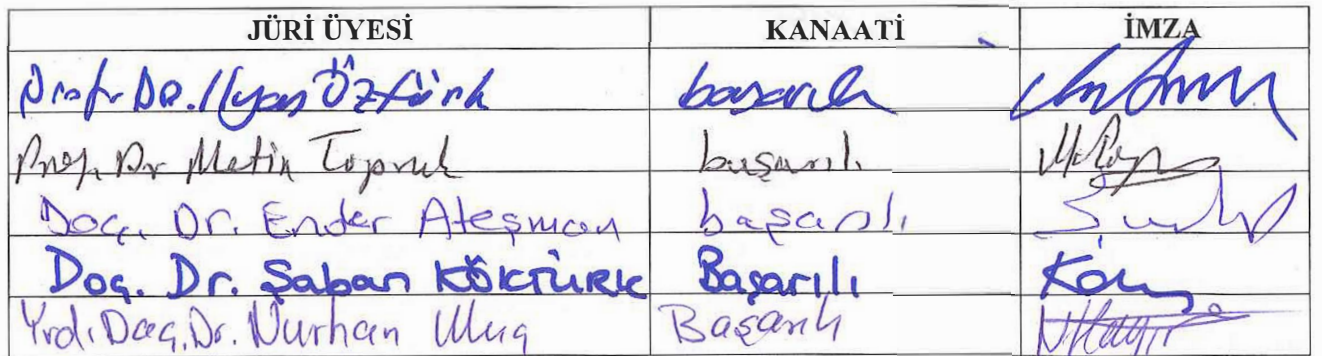 JÜRİ ÜYESİ KANAATİ İMZA
Prof. Dr. İlyas Öztürk başarılı
Prof. Dr Metin Toprak başarılı
Doç. Dr. Ender Ateşman başarılı
Doç. Dr. Şaban KÖKTÜRK Başarılı
Yrd. Doç. Dr. Nurhan Uluç Başarılı